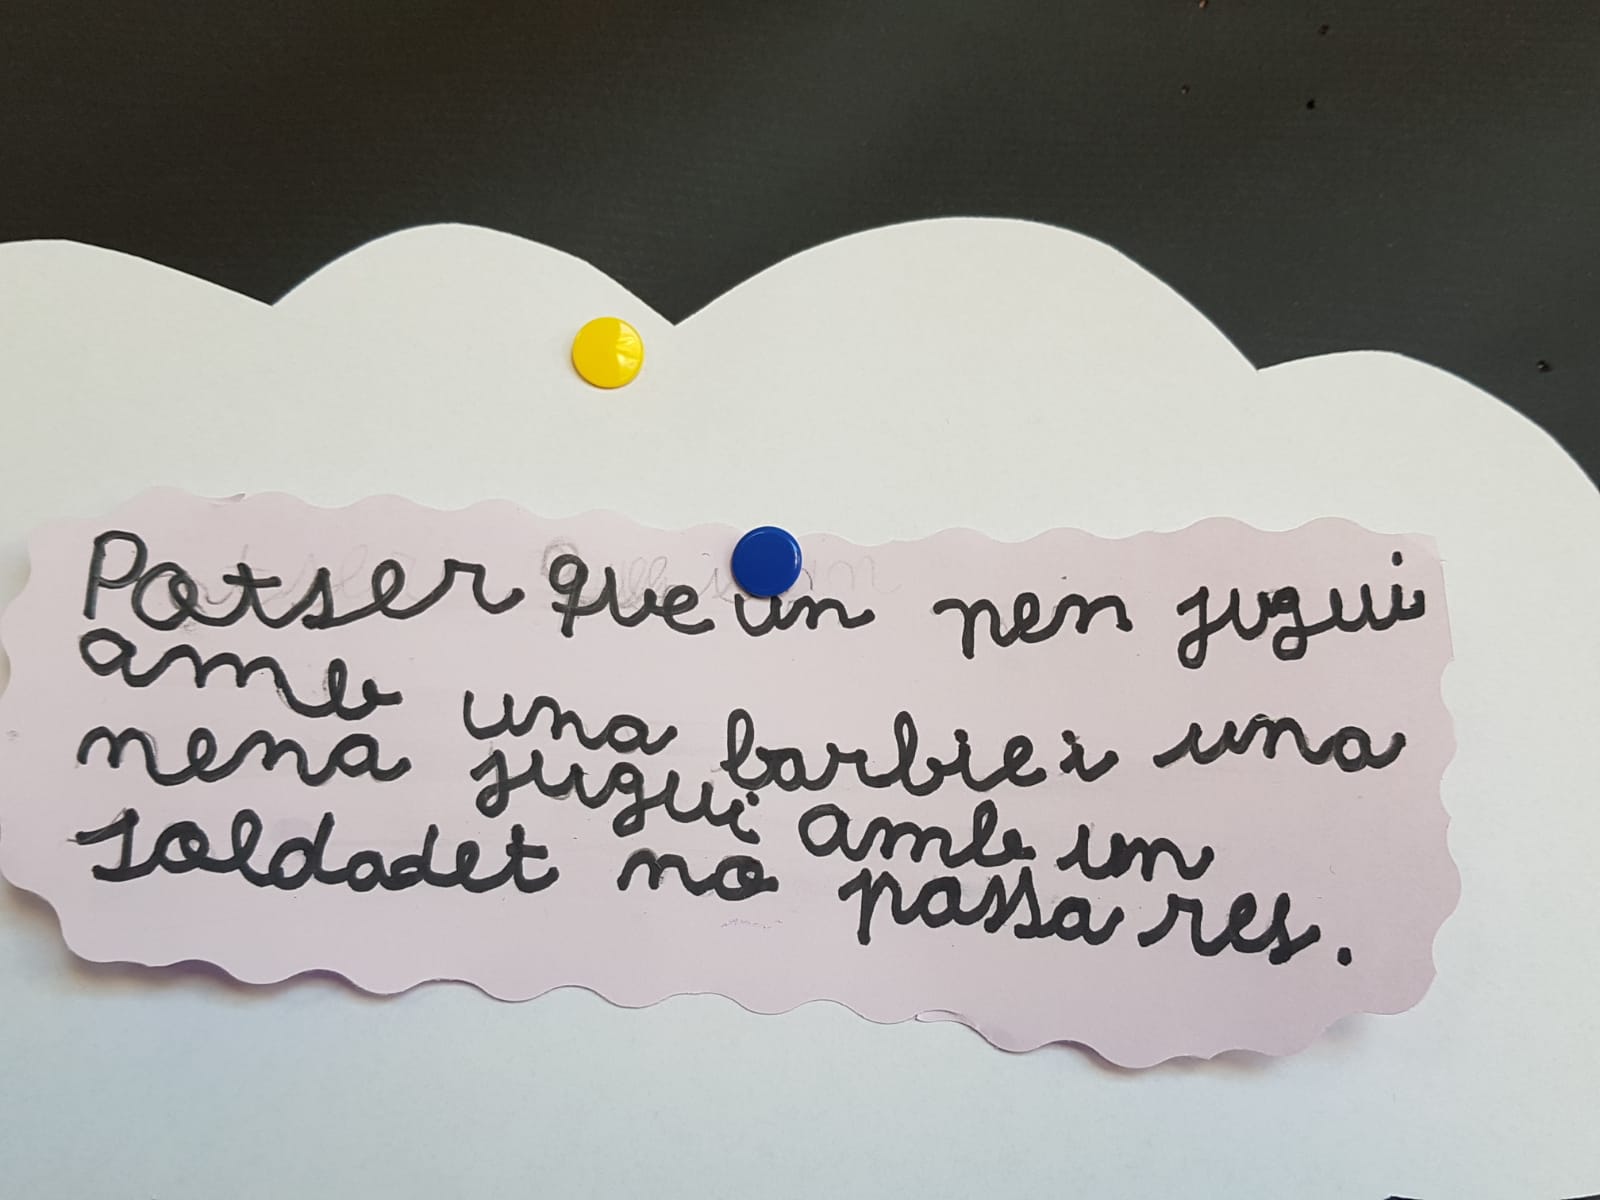 Potser que un nen jugui
amb una barbie i una
nena jugui amb un
soldadet no passa res.